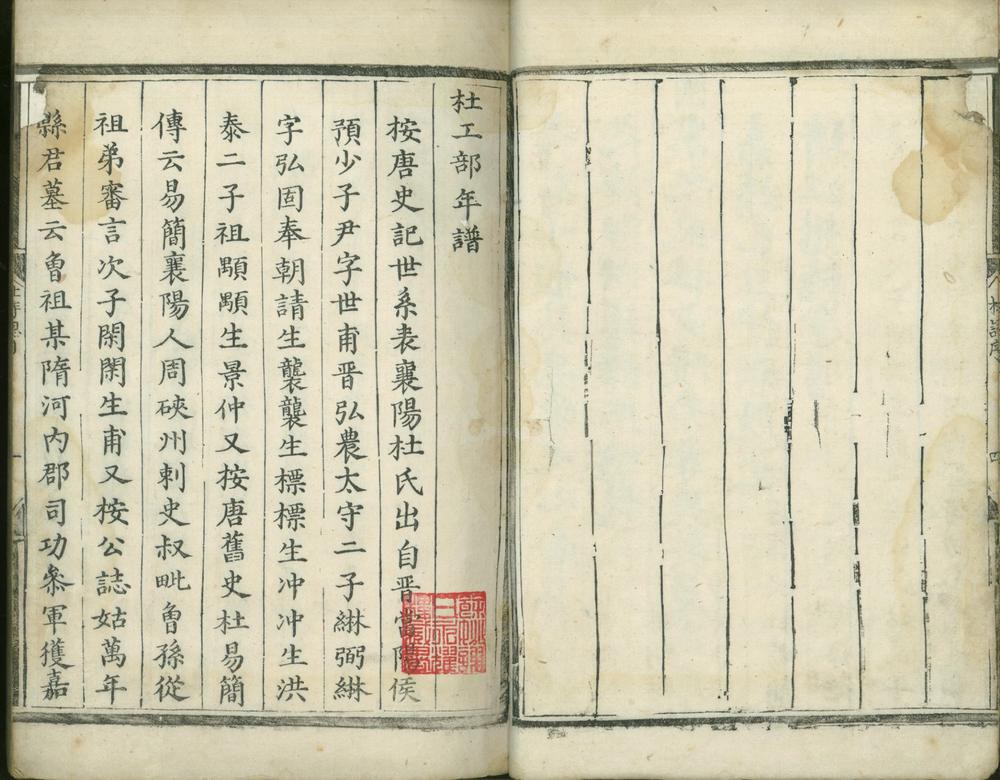 杜工部年譜
按唐史記世系表襄陽杜氏出自晉當陽侯
預少子尹字世甫晉弘農太守二子綝弼綝
字弘固奉朝請生襲襲生標標生冲冲生洪
泰二子祖顒顒生景仲又按唐舊史杜易簡
傳云易簡襄陽人周硤州刺史叔毗曾孫從
祖弟審言次子閑閑生甫又按公誌姑萬年
縣君墓云曾祖某隋河内郡司功叅軍獲嘉